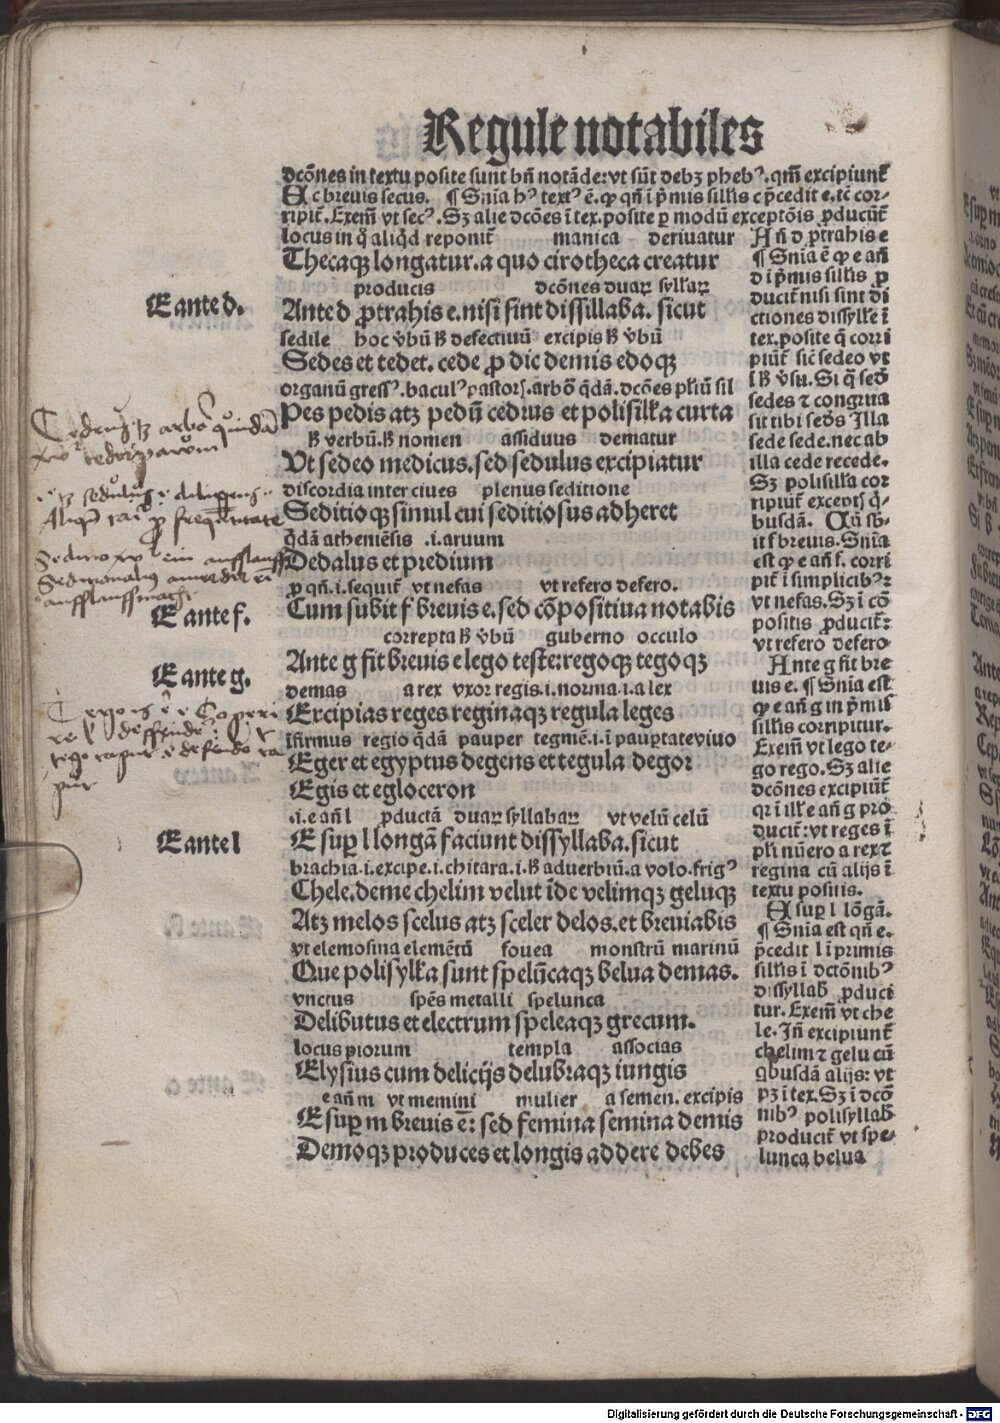 Regule notabiles
dcōnes in textu posite sunt bn̄ notāde: vt sūt debꝫ phebꝰ. qm̄ excipiunt̄
Ac breuis secus. ¶ Sn̄ia hꝰ textꝰ ē. ꝙ qn̄ i p̄mis sillīs c p̄cedit e. tc̄ cor-
ripit̄. Exem̄ vt secꝰ. Sꝫ alie dcōes ī tex. posite ꝑ modū exceptōis ꝓducūt̄
locus in q̄ aliq̄d reponit̄ manica deriuatur
Thecaqꝫ longatur. a quo cirotheca creatur
producis dcōnes duaꝝ syllaꝝ
E ante d.
Ante d ꝓtrahis e. nisi sint dissillaba. sicut
sedile hoc v̄bū ß defectiuū excipis ß v̄bū
Sedes et tedet. cede ꝓ dic demis edoqꝫ
organū gressꝰ. baculꝰ pastorꝭ. arbō q̄dā. dcōes pl̄iū sil
Pes pedis atqꝫ pedū cedrus et polisill̄a curta
ß verbū. ß nomen assiduus dematur
Vt sedeo medicus. sed sedulus excipiatur
discordia inter ciues plenus seditione
Seditioqꝫ simul cui seditiosus adheret
q̄dā atheniēsis .i. aruum
Dedalus et predium
ꝓ qn̄. i. sequit̄ vt nefas vt refero defero.
Cum subit f breuis e. sed cōpositiua notabis
E ante f.
correpta ß v̄bū guberno occulo
Ante g fit breuis e lego teste: regoqꝫ tegoqꝫ
E ante g.
demas a rex vxor regis. i. norma. i. a lex
Excipias reges reginaqꝫ regula leges
īfirmus regio q̄dā pauper tegmē. i. ī paup̄tate viuo
Eger et egyptus degens et tegula degor
Egis et egloceron
.i. e an̄ l ꝓductā duaꝝ syllabaꝝ vt velū celū
E ante l
E suꝑ l longā faciunt dissyllaba. sicut
brachia. i. excipe. i. chitara. i. ß aduerbiū. a volo. frigꝰ
Chele. deme chelim velut īde velimqꝫ geluqꝫ
Atqꝫ melos scelus atqꝫ sceler delos. et breuiabis
vt elemosina elemētū fouea monstrū marinū
Que polisyll̄a sunt spelūcaqꝫ belua demas.
vnctus spēs metalli spelunca
Delibutus et electrum speleaqꝫ grecum.
locus piorum templa associas
Elysius cum delicijs delubraqꝫ iungis
e an̄ m vt memini mulier a semen. excipis
E suꝑ m breuis ē: sed femina semina demis
Demoqꝫ produces et longis addere debes
An̄ d ꝓtrahis e
¶ Sn̄ia ē ꝙ e an̄
d i p̄mis sillis ꝓ
ducit̄ nisi sint di
ctiones dissylle ī
tex. posite q̄ corri
piūt̄ sic̄ sedeo vt
l ß v̄su. Si q̄ sedꝭ
sedes ⁊ congrua
sit tibi sedꝭs Illa
sede sede. nec ab
illa cede recede.
Sꝫ polisill̄a cor
ripiūt̄ exceptꝭ q̄-
busdā. Cū sb̄-
it f breuis. Sn̄ia
est ꝙ e an̄ f. corri
pit̄ ī simplicibꝰ:
vt nefas. Sꝫ ī cō
positis ꝓducit̄:
vt refero defero
Ante g fit bre
uis e. ¶ Sn̄ia est
ꝙ e an̄ g in p̄mis
sillīs corripitur.
Exem̄ vt lego te-
go rego. Sꝫ alie
dcōnes excipiūt̄
qr ī ill̄e an̄ g pro
ducit̄: vt reges ī
pl̄i nūero a rex ⁊
regina cū alijs ī
textu positis.
E suꝑ l lōgā.
¶ Sn̄ia est qn̄ e.
p̄cedit l ī primis
sillīs ī dctōnibꝰ
dissyllab̄ ꝓduci
tur. Exem̄ vt che
le. In̄ excipiunt̄
chelim ⁊ gelu cū
qbusdā alijs: vt
pꝫ ī tex. Sꝫ ī dcō
nibꝰ polisyllab̄
producit̄ vt spe-
lunca belua
Digitalisierung gefördert durch die Deutsche Forschungsgemeinschaft - DFG